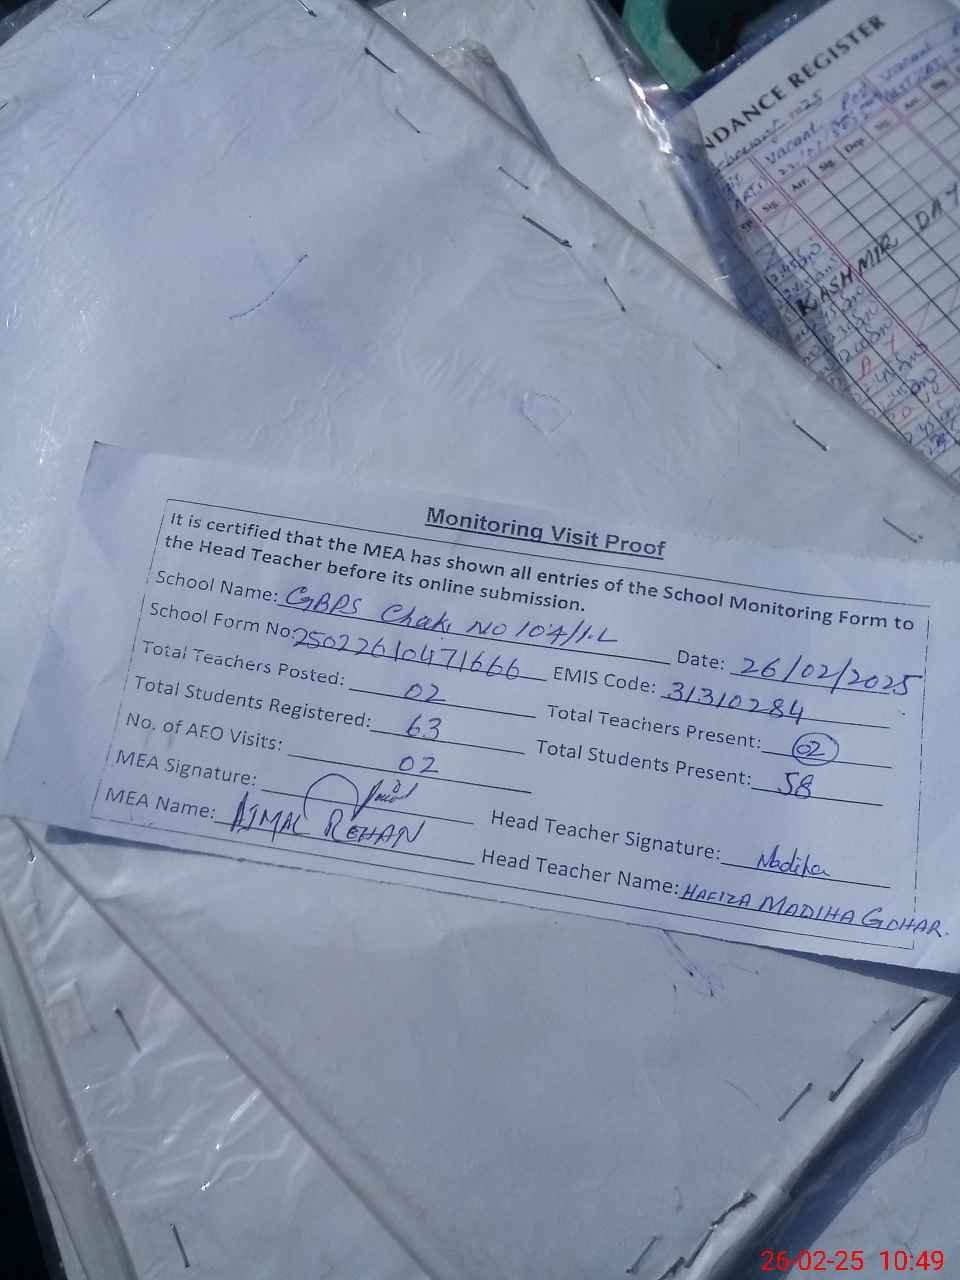 NDANCE REGISTER
vacant
Post
vacant
Arr.
Sig.
Dep
Sig.
Arr.
KASHMIR DAY
Monitoring Visit Proof
It is certified that the MEA has shown all entries of the School Monitoring Form to
the Head Teacher before its online submission.
School Name: GBPS Chak No 104/1.L Date: 26/02/2025
School Form No: 25022610471666 EMIS Code: 31310284
Total Teachers Posted: 02 Total Teachers Present: 02
Total Students Registered: 63 Total Students Present: 58
No. of AEO Visits: 02
MEA Signature: Head Teacher Signature: Madiha
MEA Name: AJMAL REHAN Head Teacher Name: HAFIZA MADIHA GOHAR.
26-02-25 10:49